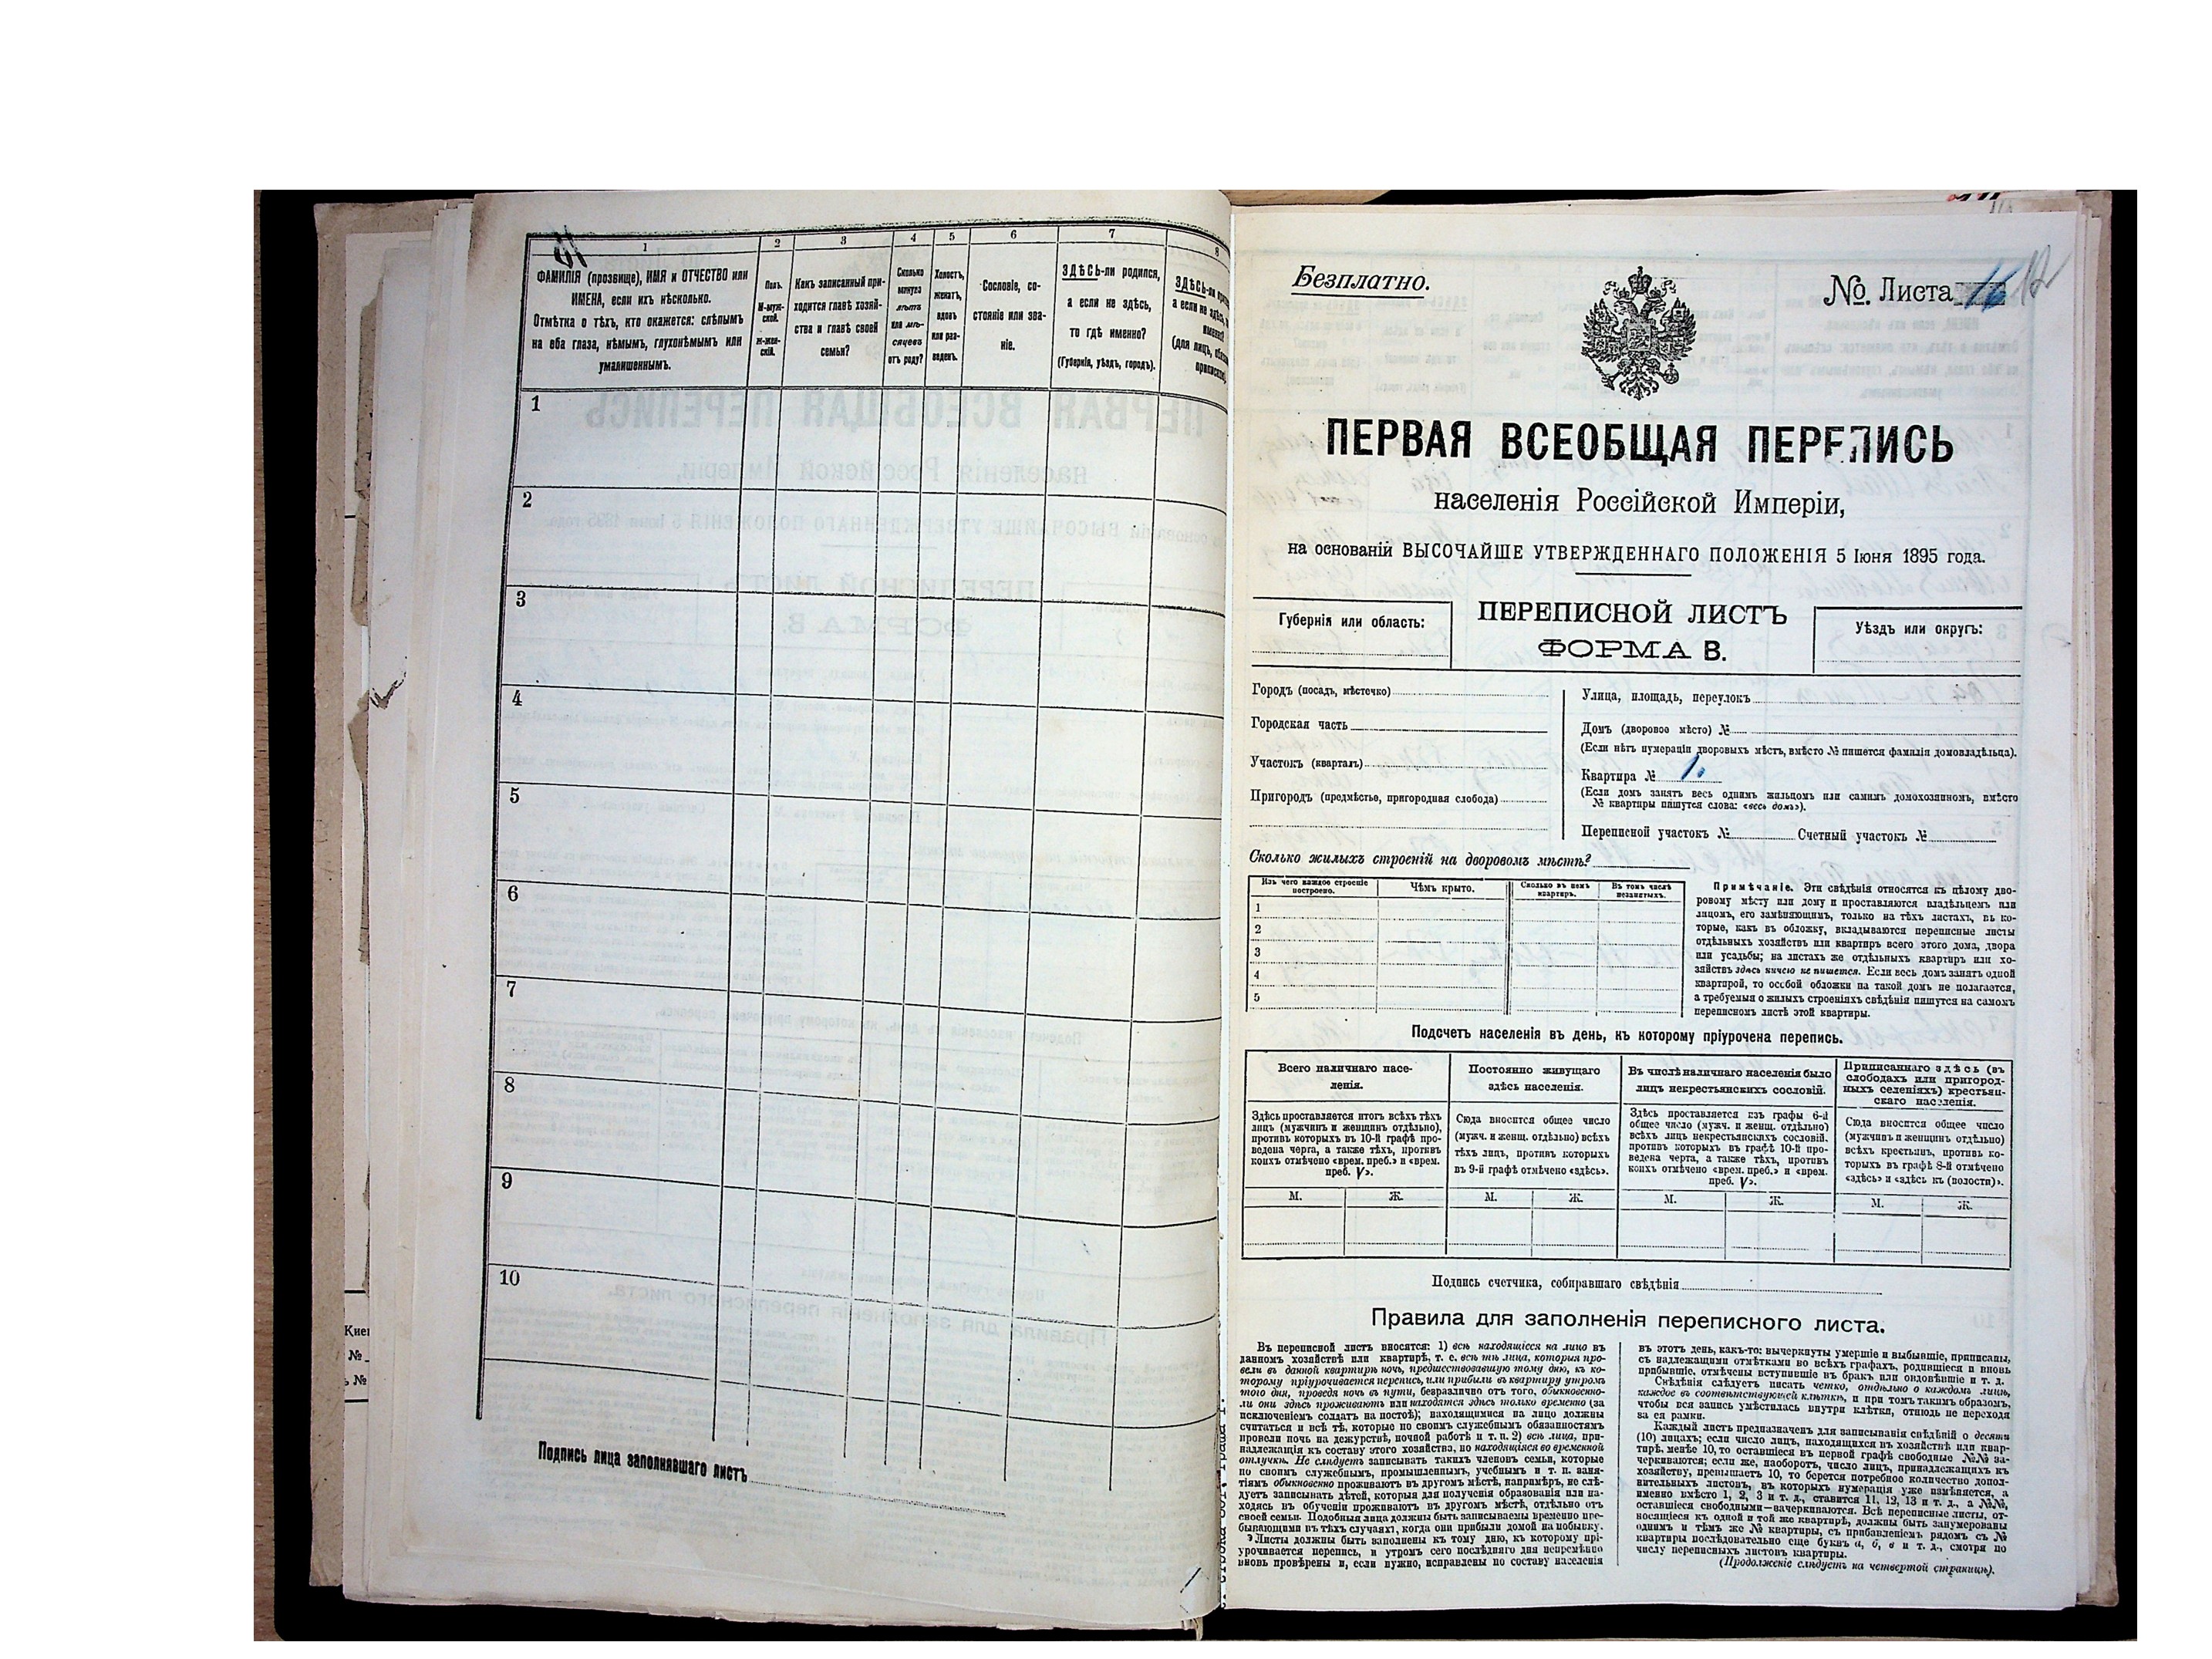 1
2
3
4
5
6
7
8
ФАМИЛІЯ (прозвище), ИМЯ и ОТЧЕСТВО или
ИМЕНА, если ихъ нѣсколько.
Отмѣтка о тѣхъ, кто окажется: слѣпымъ
на оба глаза, нѣмымъ, глухонѣмымъ или
умалишеннымъ.
Полъ.
М-муж-
ской.
Ж-жен-
скій.
Какъ записанный при-
ходится главѣ хозяй-
ства и главѣ своей
семьи?
Сколько
минуло
лѣтъ
или мѣ-
сяцевъ
отъ роду?
Холостъ,
женатъ,
вдовъ
или раз-
веденъ.
Сословіе, со-
стояніе или зва-
ніе.
ЗДѢСЬ-ли родился,
а если не здѣсь,
то гдѣ именно?
(Губернія, уѣздъ, городъ).
ЗДѢСЬ-ли
а если не здѣсь,
(для лицъ,
1
2
3
4
5
6
7
8
9
10
Подпись лица заполнявшаго листъ
Безплатно.
№ Листа
ПЕРВАЯ ВСЕОБЩАЯ ПЕРЕПИСЬ
населенія Россійской Имперіи,
на основаніи ВЫСОЧАЙШЕ УТВЕРЖДЕННАГО ПОЛОЖЕНІЯ 5 Іюня 1895 года.
Губернія или область:
ПЕРЕПИСНОЙ ЛИСТЪ
ФОРМА В.
Уѣздъ или округъ:
Городъ (посадъ, мѣстечко)
Городская часть
Участокъ (кварталъ)
Пригородъ (предмѣстье, пригородная слобода)
Улица, площадь, переулокъ
Домъ (дворовое мѣсто) №
(Если нѣтъ нумераціи дворовыхъ мѣстъ, вмѣсто № пишется фамилія домовладѣльца).
Квартира № 1.
(Если домъ занятъ весь однимъ жильцомъ или самимъ домохозяиномъ, вмѣсто
№ квартиры пишутся слова: «весь домъ»).
Переписной участокъ № Счетный участокъ №
Сколько жилыхъ строеній на дворовомъ мѣстѣ?
Изъ чего каждое строеніе
построено.
Чѣмъ крыто.
Сколько въ немъ
квартиръ.
Въ томъ числѣ
незанятыхъ.
1
2
3
4
5
Примѣчаніе. Эти свѣдѣнія относятся къ цѣлому дво-
ровому мѣсту или дому и проставляются владѣльцемъ или
лицомъ, его замѣняющимъ, только на тѣхъ листахъ, въ ко-
торые, какъ въ обложку, вкладываются переписные листы
отдѣльныхъ хозяйствъ или квартиръ всего этого дома, двора
или усадьбы; на листахъ же отдѣльныхъ квартиръ или хо-
зяйствъ здѣсь ничего не пишется. Если весь домъ занятъ одной
квартирой, то особой обложки на такой домъ не полагается,
а требуемыя о жилыхъ строеніяхъ свѣдѣнія пишутся на самомъ
переписномъ листѣ этой квартиры.
Подсчетъ населенія въ день, къ которому пріурочена перепись.
Всего наличнаго насе-
ленія.
Здѣсь проставляется итогъ всѣхъ тѣхъ
лицъ (мужчинъ и женщинъ отдѣльно),
противъ которыхъ въ 10-й графѣ про-
ведена черта, а также тѣхъ, противъ
коихъ отмѣчено «врем. преб.» и «врем.
преб. V».
Постоянно живущаго
здѣсь населенія.
Сюда вносится общее число
(мужч. и женщ. отдѣльно) всѣхъ
тѣхъ лицъ, противъ которыхъ
въ 9-й графѣ отмѣчено «здѣсь».
Въ числѣ наличнаго населенія было
лицъ некрестьянскихъ сословій.
Здѣсь проставляется изъ графы 6-й
общее число (мужч. и женщ. отдѣльно)
всѣхъ лицъ некрестьянскихъ сословій.
противъ которыхъ въ графѣ 10-й про-
ведена черта, а также тѣхъ, противъ
коихъ отмѣчено «врем. преб.» и «врем.
преб. V».
Приписаннаго здѣсь (въ
слободахъ или пригород-
ныхъ селеніяхъ) крестьян-
скаго населенія.
Сюда вносится общее число
(мужчинъ и женщинъ отдѣльно)
всѣхъ крестьянъ, противъ ко-
торыхъ въ графѣ 8-й отмѣчено
«здѣсь» и «здѣсь къ (волости)».
М. Ж. М. Ж. М. Ж. М. Ж.
Подпись счетчика, собиравшаго свѣдѣнія
Правила для заполненія переписного листа.
Въ переписной листъ вносятся: 1) всѣ находящіеся на лицо въ
данномъ хозяйствѣ или квартирѣ, т. е. всѣ тѣ лица, которыя про-
вели въ данной квартирѣ ночь, предшествовавшую тому дню, къ ко-
торому пріурочивается перепись, или прибыли въ квартиру утромъ
того дня, проведя ночь въ пути, безразлично отъ того, обыкновенно-
ли они здѣсь проживаютъ или находятся здѣсь только временно (за
исключеніемъ солдатъ на постоѣ); находящимися на лицо должны
считаться и всѣ тѣ, которые по своимъ служебнымъ обязанностямъ
провели ночь на дежурствѣ, ночной работѣ и т. п. 2) всѣ лица, при-
надлежащія къ составу этого хозяйства, но находящіяся во временной
отлучкѣ. Не слѣдуетъ записывать такихъ членовъ семьи, которые
по своимъ служебнымъ, промышленнымъ, учебнымъ и т. п. заня-
тіямъ обыкновенно проживаютъ въ другомъ мѣстѣ, напримѣръ, не слѣ-
дуетъ записывать дѣтей, которыя для полученія образованія или на-
ходясь въ обученіи проживаютъ въ другомъ мѣстѣ, отдѣльно отъ
своей семьи. Подобныя лица должны быть записываемы временно пре-
бывающими въ тѣхъ случаяхъ, когда они прибыли домой на побывку.
Листы должны быть заполнены къ тому дню, къ которому прі-
урочивается перепись, и утромъ сего послѣдняго дня непремѣнно
вновь провѣрены и, если нужно, исправлены по составу населенія
въ этотъ день, какъ-то: вычеркнуты умершіе и выбывшіе, приписаны,
съ надлежащими отмѣтками во всѣхъ графахъ, родившіеся и вновь
прибывшіе, отмѣчены вступившіе въ бракъ или овдовѣвшіе и т. д.
Свѣдѣнія слѣдуетъ писать четко, отдѣльно о каждомъ лицѣ,
каждое въ соотвѣтствующей клѣткѣ, и при томъ такимъ образомъ,
чтобы вся запись умѣстилась внутри клѣтки, отнюдь не переходя
за ея рамки.
Каждый листъ предназначенъ для записыванія свѣдѣній о десяти
(10) лицахъ; если число лицъ, находящихся въ хозяйствѣ или квар-
тирѣ, менѣе 10, то оставшіеся въ первой графѣ свободные №№ за-
черкиваются; если же, наоборотъ, число лицъ, принадлежащихъ къ
хозяйству, превышаетъ 10, то берется потребное количество допол-
нительныхъ листовъ, въ которыхъ нумерація уже измѣняется, а
именно вмѣсто 1, 2, 3 и т. д., ставится 11, 12, 13 и т. д., а №№,
оставшіеся свободными—зачеркиваются. Всѣ переписные листы, от-
носящіеся къ одной и той же квартирѣ, должны быть занумерованы
однимъ и тѣмъ же № квартиры, съ прибавленіемъ рядомъ съ №
квартиры послѣдовательно еще буквъ а, б, в и т. д., смотря по
числу переписныхъ листовъ квартиры.
(Продолженіе слѣдуетъ на четвертой страницѣ).